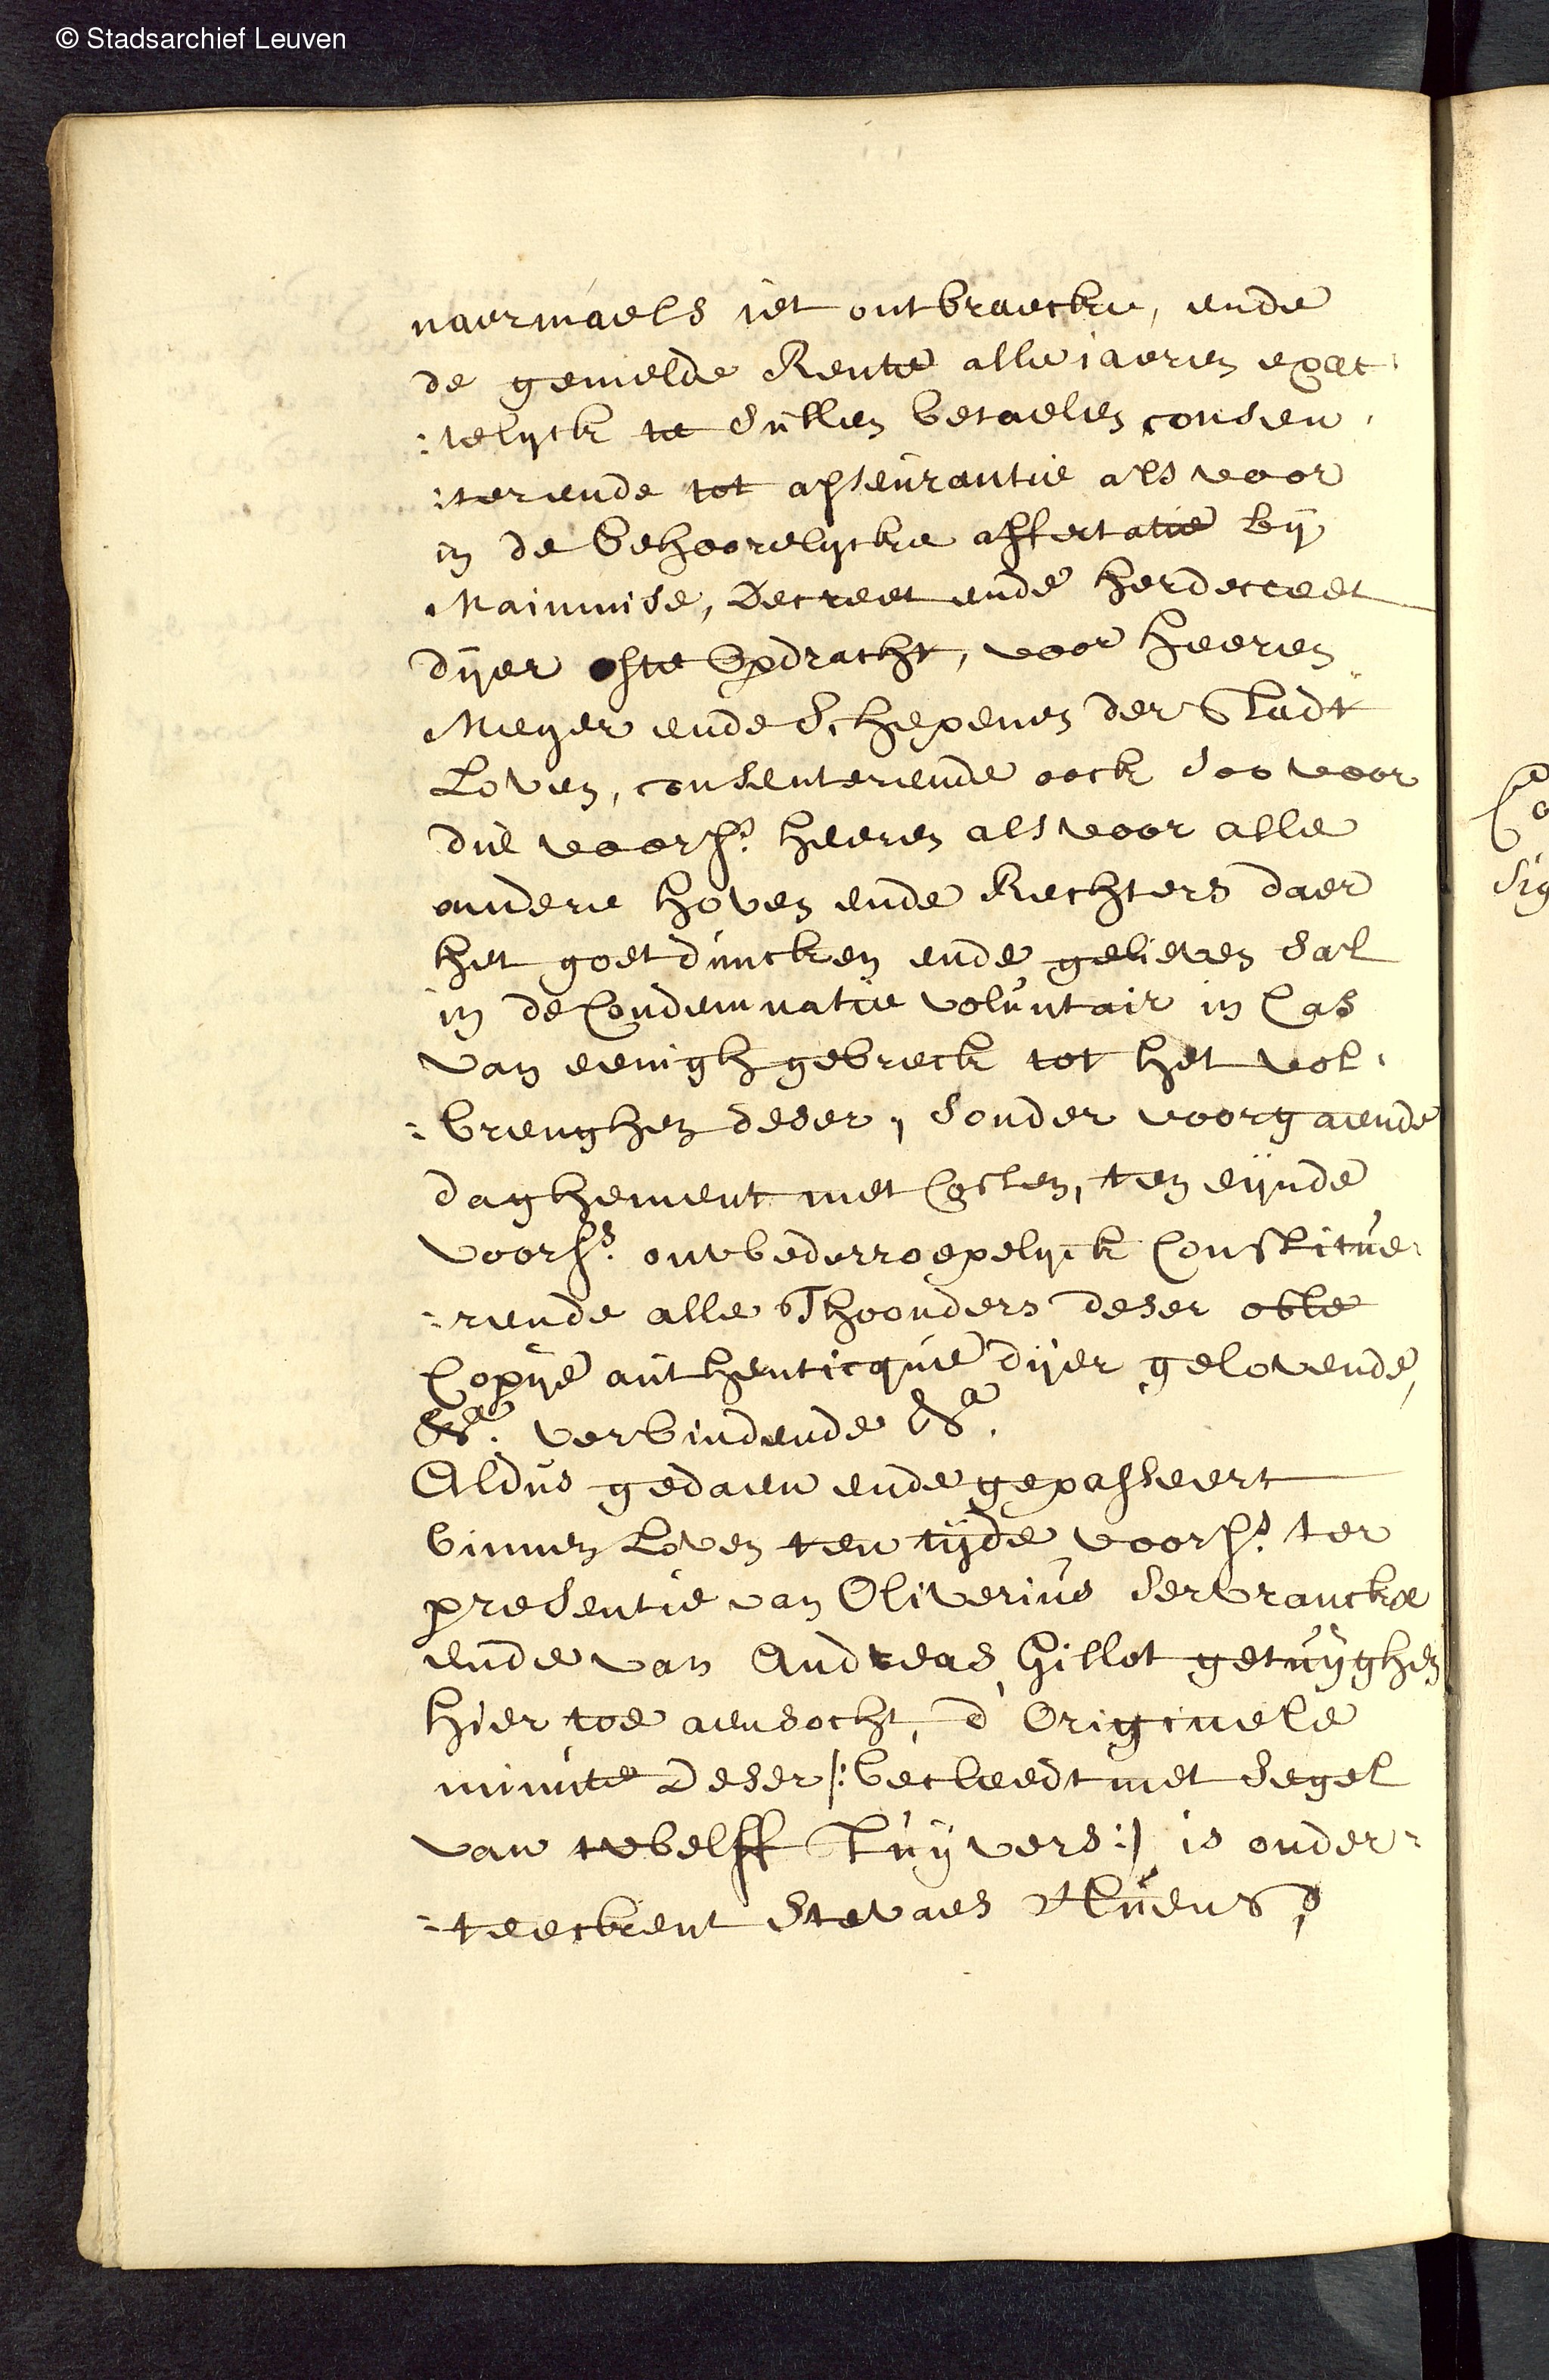 © Stadsarchief Leuven
naermaels iet ontbraecke, ende
de gemelde Rente alle jaeren exac:
:telyck te sullen betaelen consen:
:terende tot asseurantie als voor
in de behoorelycke affectatie bij
Mainmise, Decreet ende herdecreet
dijer ofte Opdracht, voor heeren
Meyer ende Schepenen der Stadt
Loven, consenterende oock soo voor
die voors: heeren als voor alle
andere hoven ende Rechters daer
het goet duncken ende gelieven sal
in de Condemnatie voluntair in Cas
van eenigh gebreck tot het vol:
:brenghen deser, sonder voorgaende
daghement met Costen, ten eijnde
voors: onwederroepelyck Constitue:
:rende alle Thoonders deser ofte
Copije authenticque dijer gelovende,
&a. verbindende &a.
Aldus gedaen ende gepasseert
binnen Loven ten tijde voors: ter
presentie van Oliverius Servranckx
ende van Andreas Gillot getuyghen
hier toe aensocht, d' Originele
minute deser /: becleedt met segel
van twelff stuyvers :/ is onder:
:teeckent Stevaes